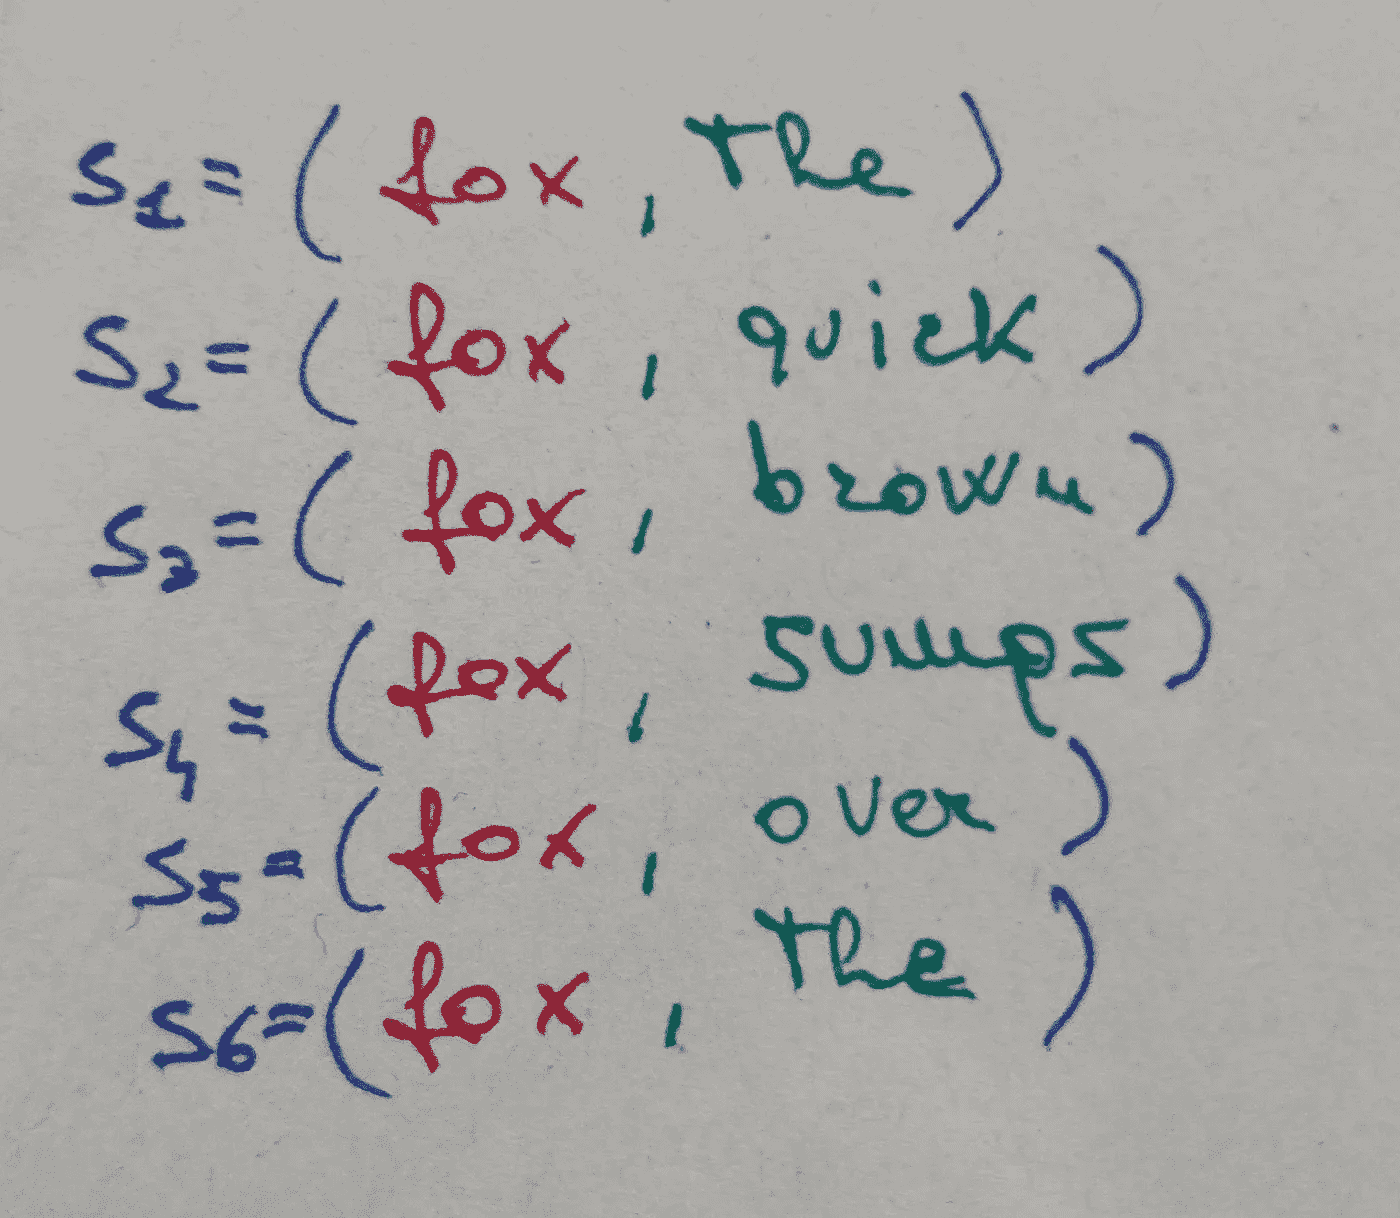 S1 = (fox, The)
S2 = (fox, quick)
S3 = (fox, brown)
S4 = (fox, sumps)
S5 = (fox, over)
S6 = (fox, The)